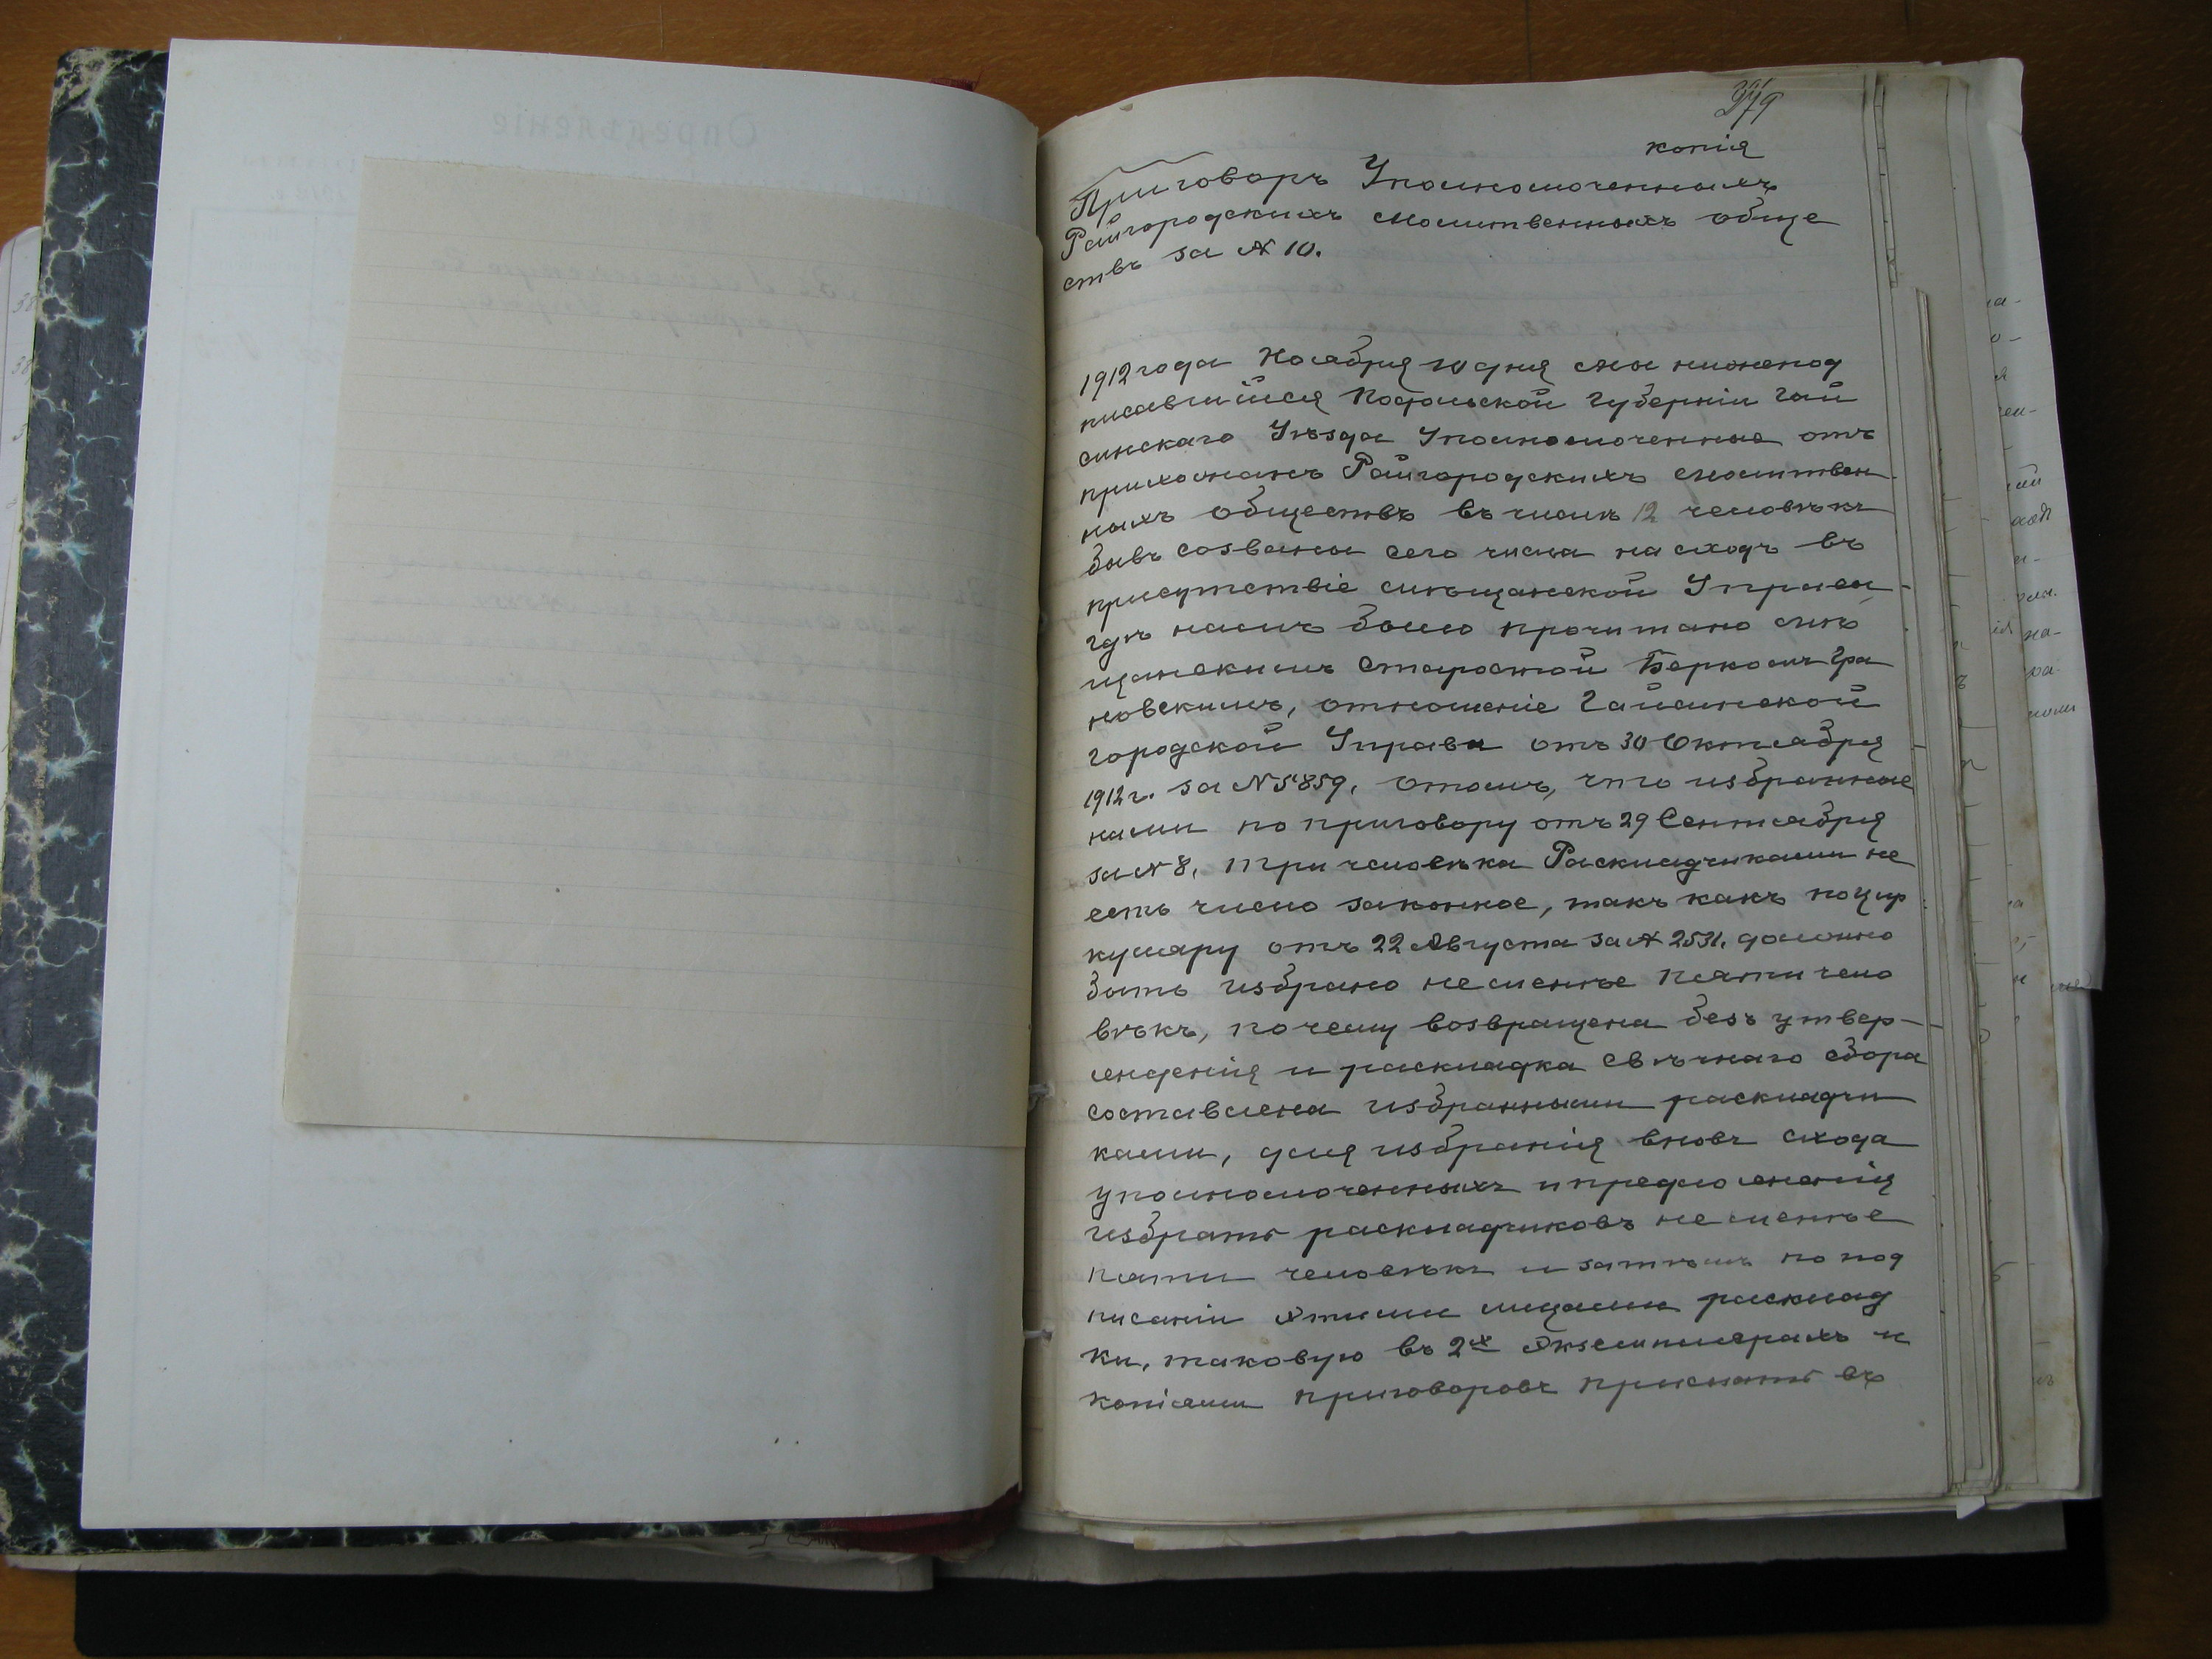 копія
Приговоръ Уполномоченныхъ
Райгородскихъ молитвенныхъ обще
ствъ за № 10.
1912 года Ноября 10 дня мы нижепод
писавшійся Подольской Губерніи Гай
синскаго Уѣзда Уполномоченные отъ
прихожанъ Райгородскихъ молитвен
ныхъ обществъ въ числѣ 12 человѣкъ
бывъ созваны сего числа на сходъ въ
присутствіе мѣщанской Управы
гдѣ намъ было прочитано мѣ
щанскимъ Старостой Беркомъ Гра
новскимъ, отношеніе Гайсинской
городской Управы отъ 30 Октября
1912 г. за № 5859, о томъ, что избранные
нами по приговору отъ 29 Сентября
за № 8, три человѣка Раскладчиками не
есть число законное, такъ какъ по цир
куляру отъ 22 Августа за № 2531. должно
быть избрано не менѣе пяти чело
вѣкъ, почему возвращена безъ утвер-
жденія и раскладка свѣчнаго сбора
составлена избранными раскладчи
ками, для избранія вновь схода
уполномоченныхъ и предложенія
избрать раскладчиковъ не менѣе
пяти человѣкъ и затѣмъ по под
писаніи этими лицами расклад
ки, таковую въ 2х экземплярахъ и
копіями приговоровъ прислать въ